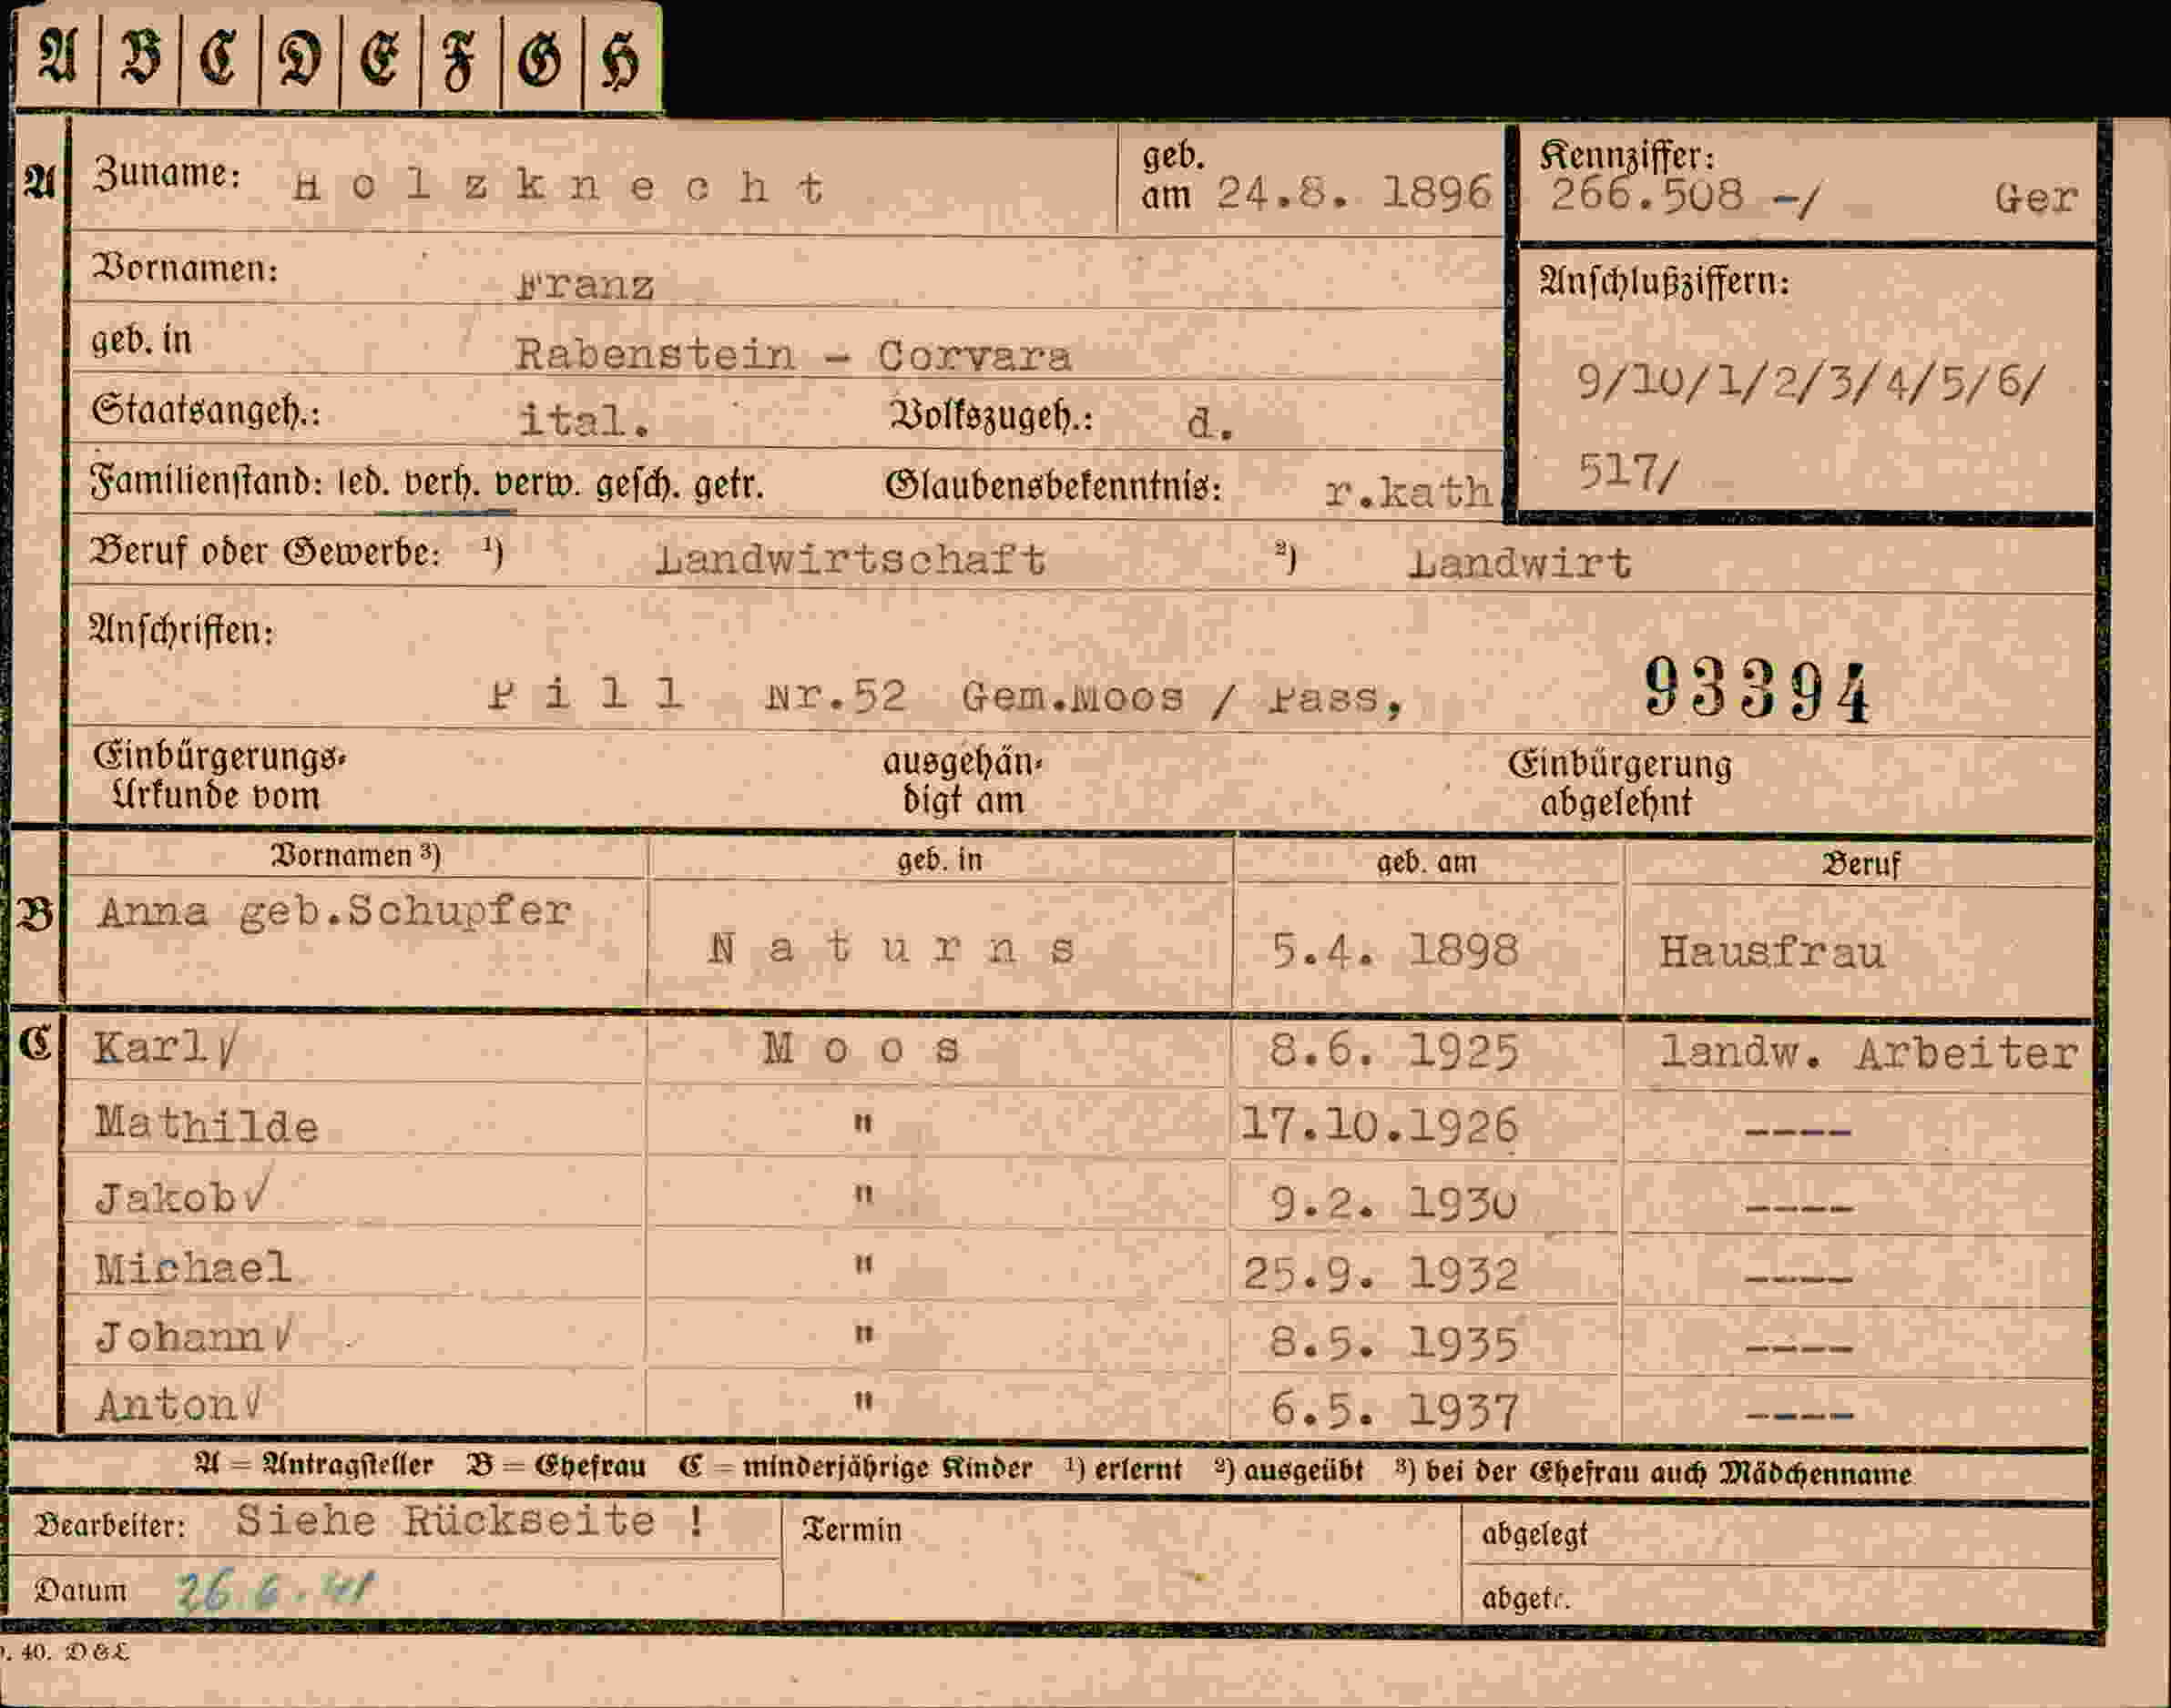 A B C D E F G H
A Zuname: Holzknecht geb. am 24.8. 1896 Kennziffer: 266.508 -/ Ger
Vornamen: Franz Anschlußziffern:
geb. in Rabenstein - Corvara 9/10/1/2/3/4/5/6/
Staatsangeh.: ital. Volkszugeh.: d. 517/
Familienstand: led. verh. verw. gesch. getr. Glaubensbekenntnis: r.kath
Beruf oder Gewerbe: ¹) Landwirtschaft ²) Landwirt
Anschriften:
Pill Nr.52 Gem.Moos / Pass, 93394
Einbürgerungs- ausgehän- Einbürgerung
Urkunde vom digt am abgelehnt
Vornamen ³) geb. in geb. am Beruf
B Anna geb.Schupfer Naturns 5.4. 1898 Hausfrau
C Karl Moos 8.6. 1925 landw. Arbeiter
Mathilde " 17.10.1926 ----
Jakob " 9.2. 1930 ----
Michael " 25.9. 1932 ----
Johann " 8.5. 1935 ----
Anton " 6.5. 1937 ----
A = Antragsteller B = Ehefrau C = minderjährige Kinder ¹) erlernt ²) ausgeübt ³) bei der Ehefrau auch Mädchenname
Bearbeiter: Siehe Rückseite ! Termin abgelegt
Datum 26.6.41 abgetr.
. 40. D&L